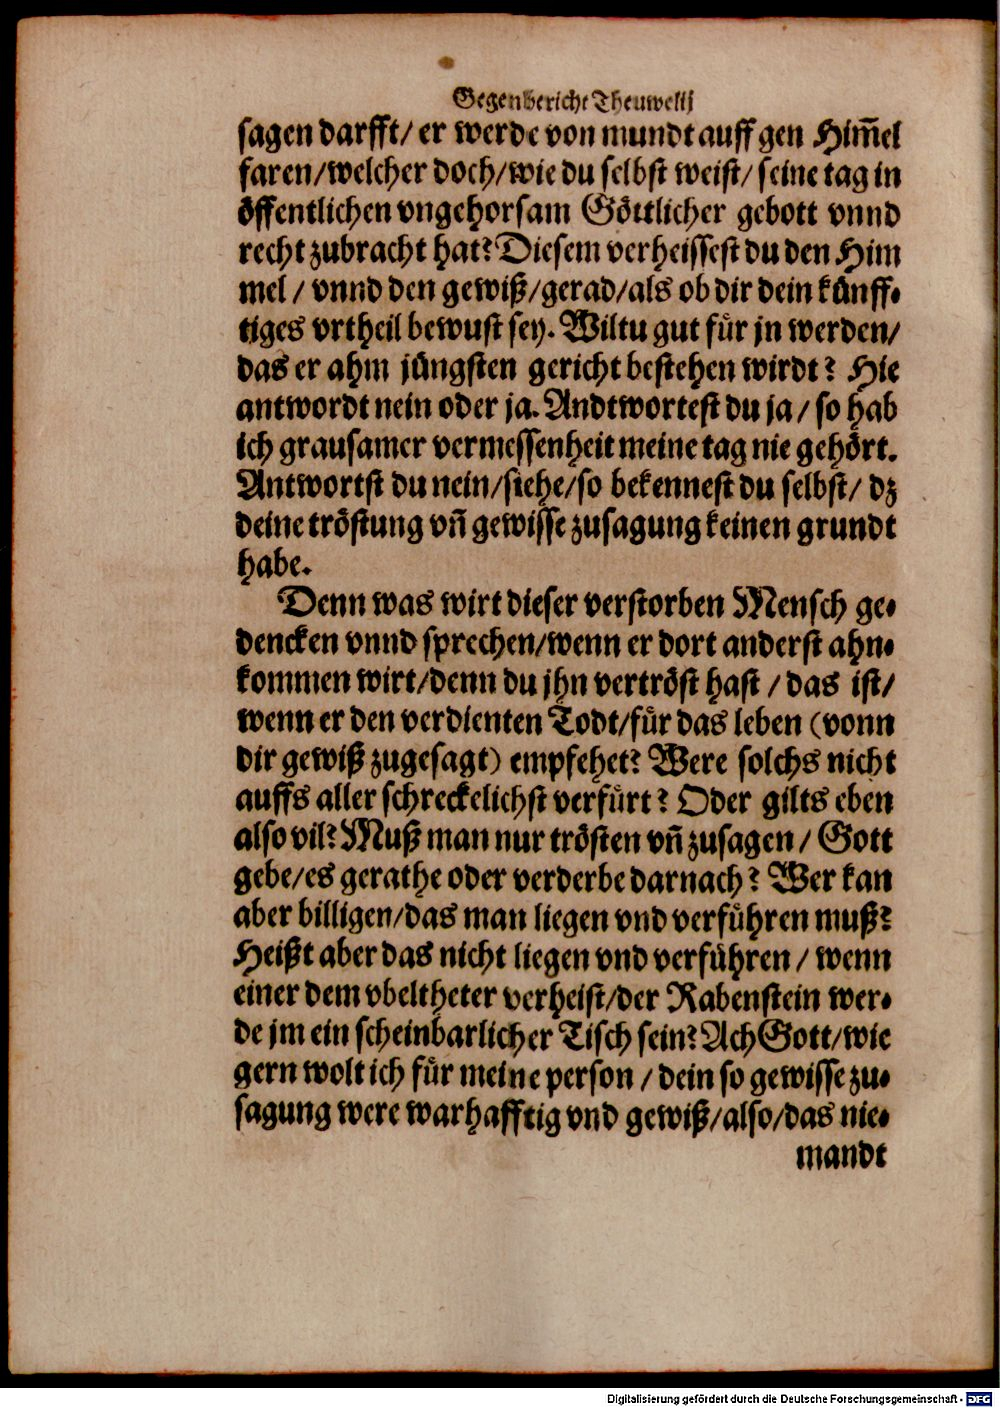 Gegenbericht Theuwelij
sagen darfft/ er werde von mundt auff gen Him̄el
faren/welcher doch/wie du selbst weist/ seine tag in
öffentlichen vngehorsam Göttlicher gebott vnnd
recht zubracht hat? Diesem verheissest du den Him
mel / vnnd den gewiß/gerad/als ob dir dein künff⸗
tiges vrtheil bewust sey. Wiltu gut für jn werden/
das er ahm jüngsten gericht bestehen wirdt? Hie
antwordt nein oder ja. Andtwortest du ja / so hab
ich grausamer vermessenheit meine tag nie gehört.
Antwortst du nein/siehe/so bekennest du selbst/ dz
deine tröstung vn̄ gewisse zusagung keinen grundt
habe.
Denn was wirt dieser verstorben Mensch ge⸗
dencken vnnd sprechen/wenn er dort anderst ahn⸗
kommen wirt/denn du jhn vertröst hast / das ist/
wenn er den verdienten Todt/für das leben (vonn
dir gewiß zugesagt) empfehet? Were solchs nicht
auffs aller schreckelichst verfürt? Oder gilts eben
also vil? Muß man nur trösten vn̄ zusagen / Gott
gebe/es gerathe oder verderbe darnach? Wer kan
aber billigen/das man liegen vnd verführen muß?
Heißt aber das nicht liegen vnd verführen / wenn
einer dem vbeltheter verheist/der Rabenstein wer⸗
de jm ein scheinbarlicher Tisch sein? Ach Gott/wie
gern wolt ich für meine person / dein so gewisse zu⸗
sagung were warhafftig vnd gewiß/also/das nie⸗
mandt
Digitalisierung gefördert durch die Deutsche Forschungsgemeinschaft - DFG